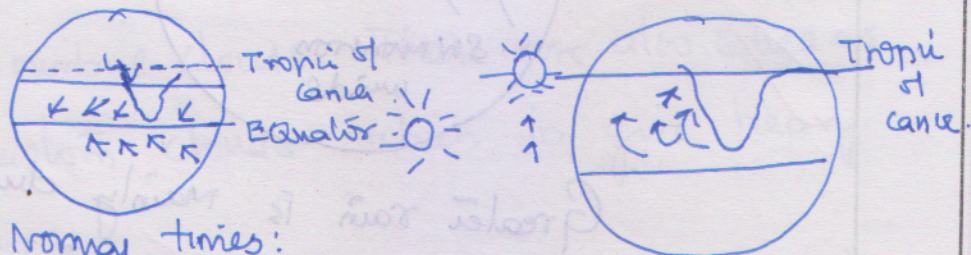 Tropic of
cancer
Equator
Tropic
of
cance.
Normal times: